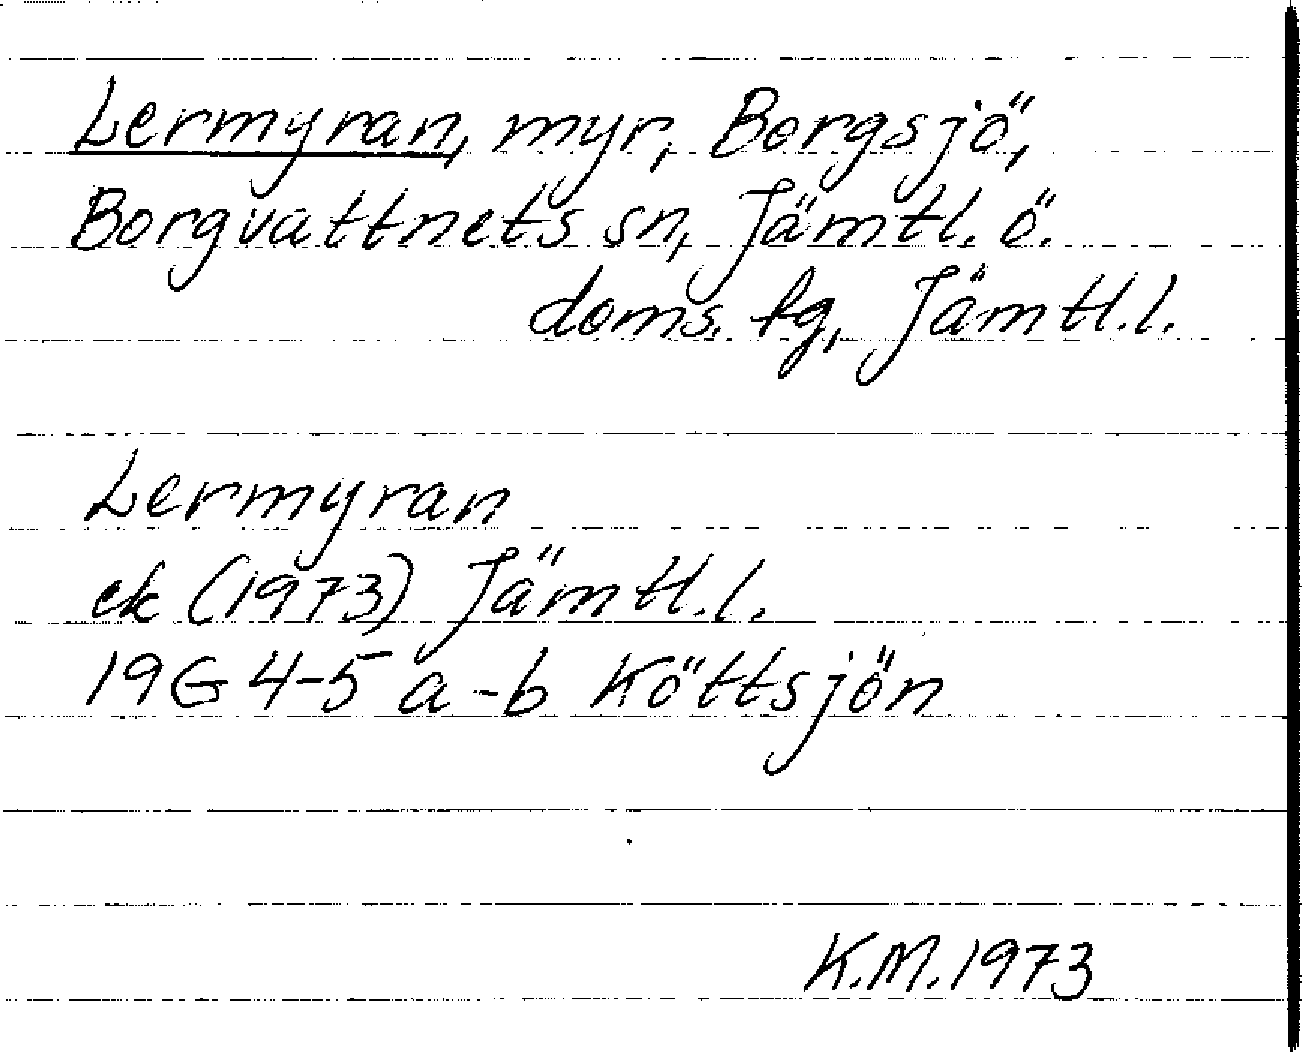 Lermyran, myr, Borgsjö,
Borgvattnets sn, Jämtl. ö.
doms. fg, Jämtl.l.
Lermyran
ek (1973) Jämtl.l.
19G 4-5 a-b Köttsjön
K.M.1973